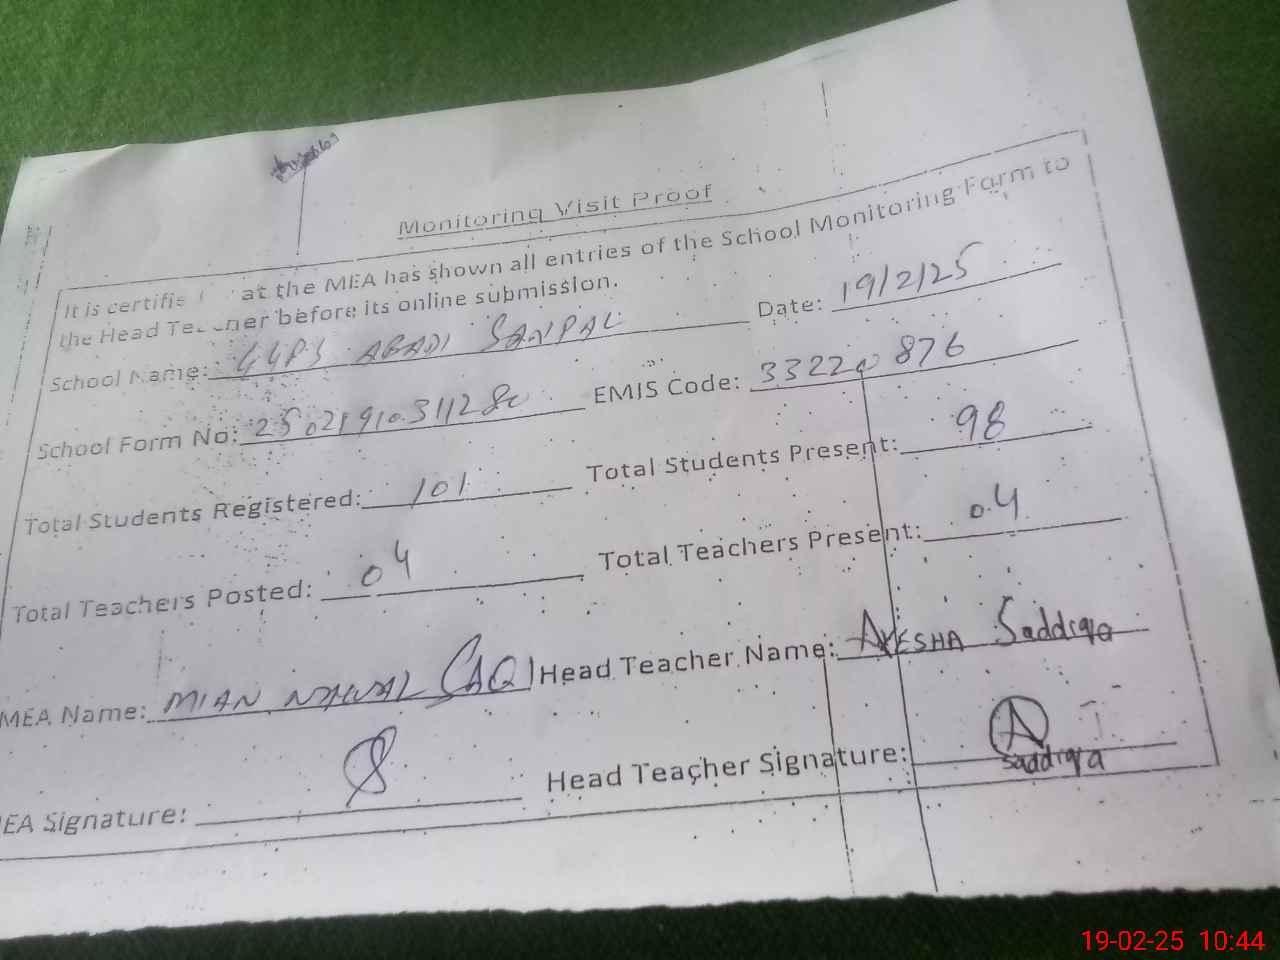 Monitoring Visit Proof
It is certifie at the MEA has shown all entries of the School Monitoring Form to
the Head Teacher before its online submission.
School Name: GGPS ABADI SANPAL Date: 19/2/25
School Form No: EMIS Code: 33220876
Total Students Registered: 101 Total Students Present: 98
Total Teachers Posted: 04 Total Teachers Present: 04
MEA Name: MIAN NAWAL Head Teacher Name: AYESHA Saddiqa
EA Signature: Head Teacher Signature: A
saddiqa
19-02-25 10:44